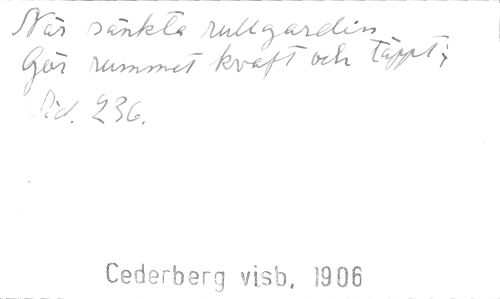 När sänkta rullgardin
Gör rummet kvaft och täppt;
Sid. 236.
Cederberg visb. 1906